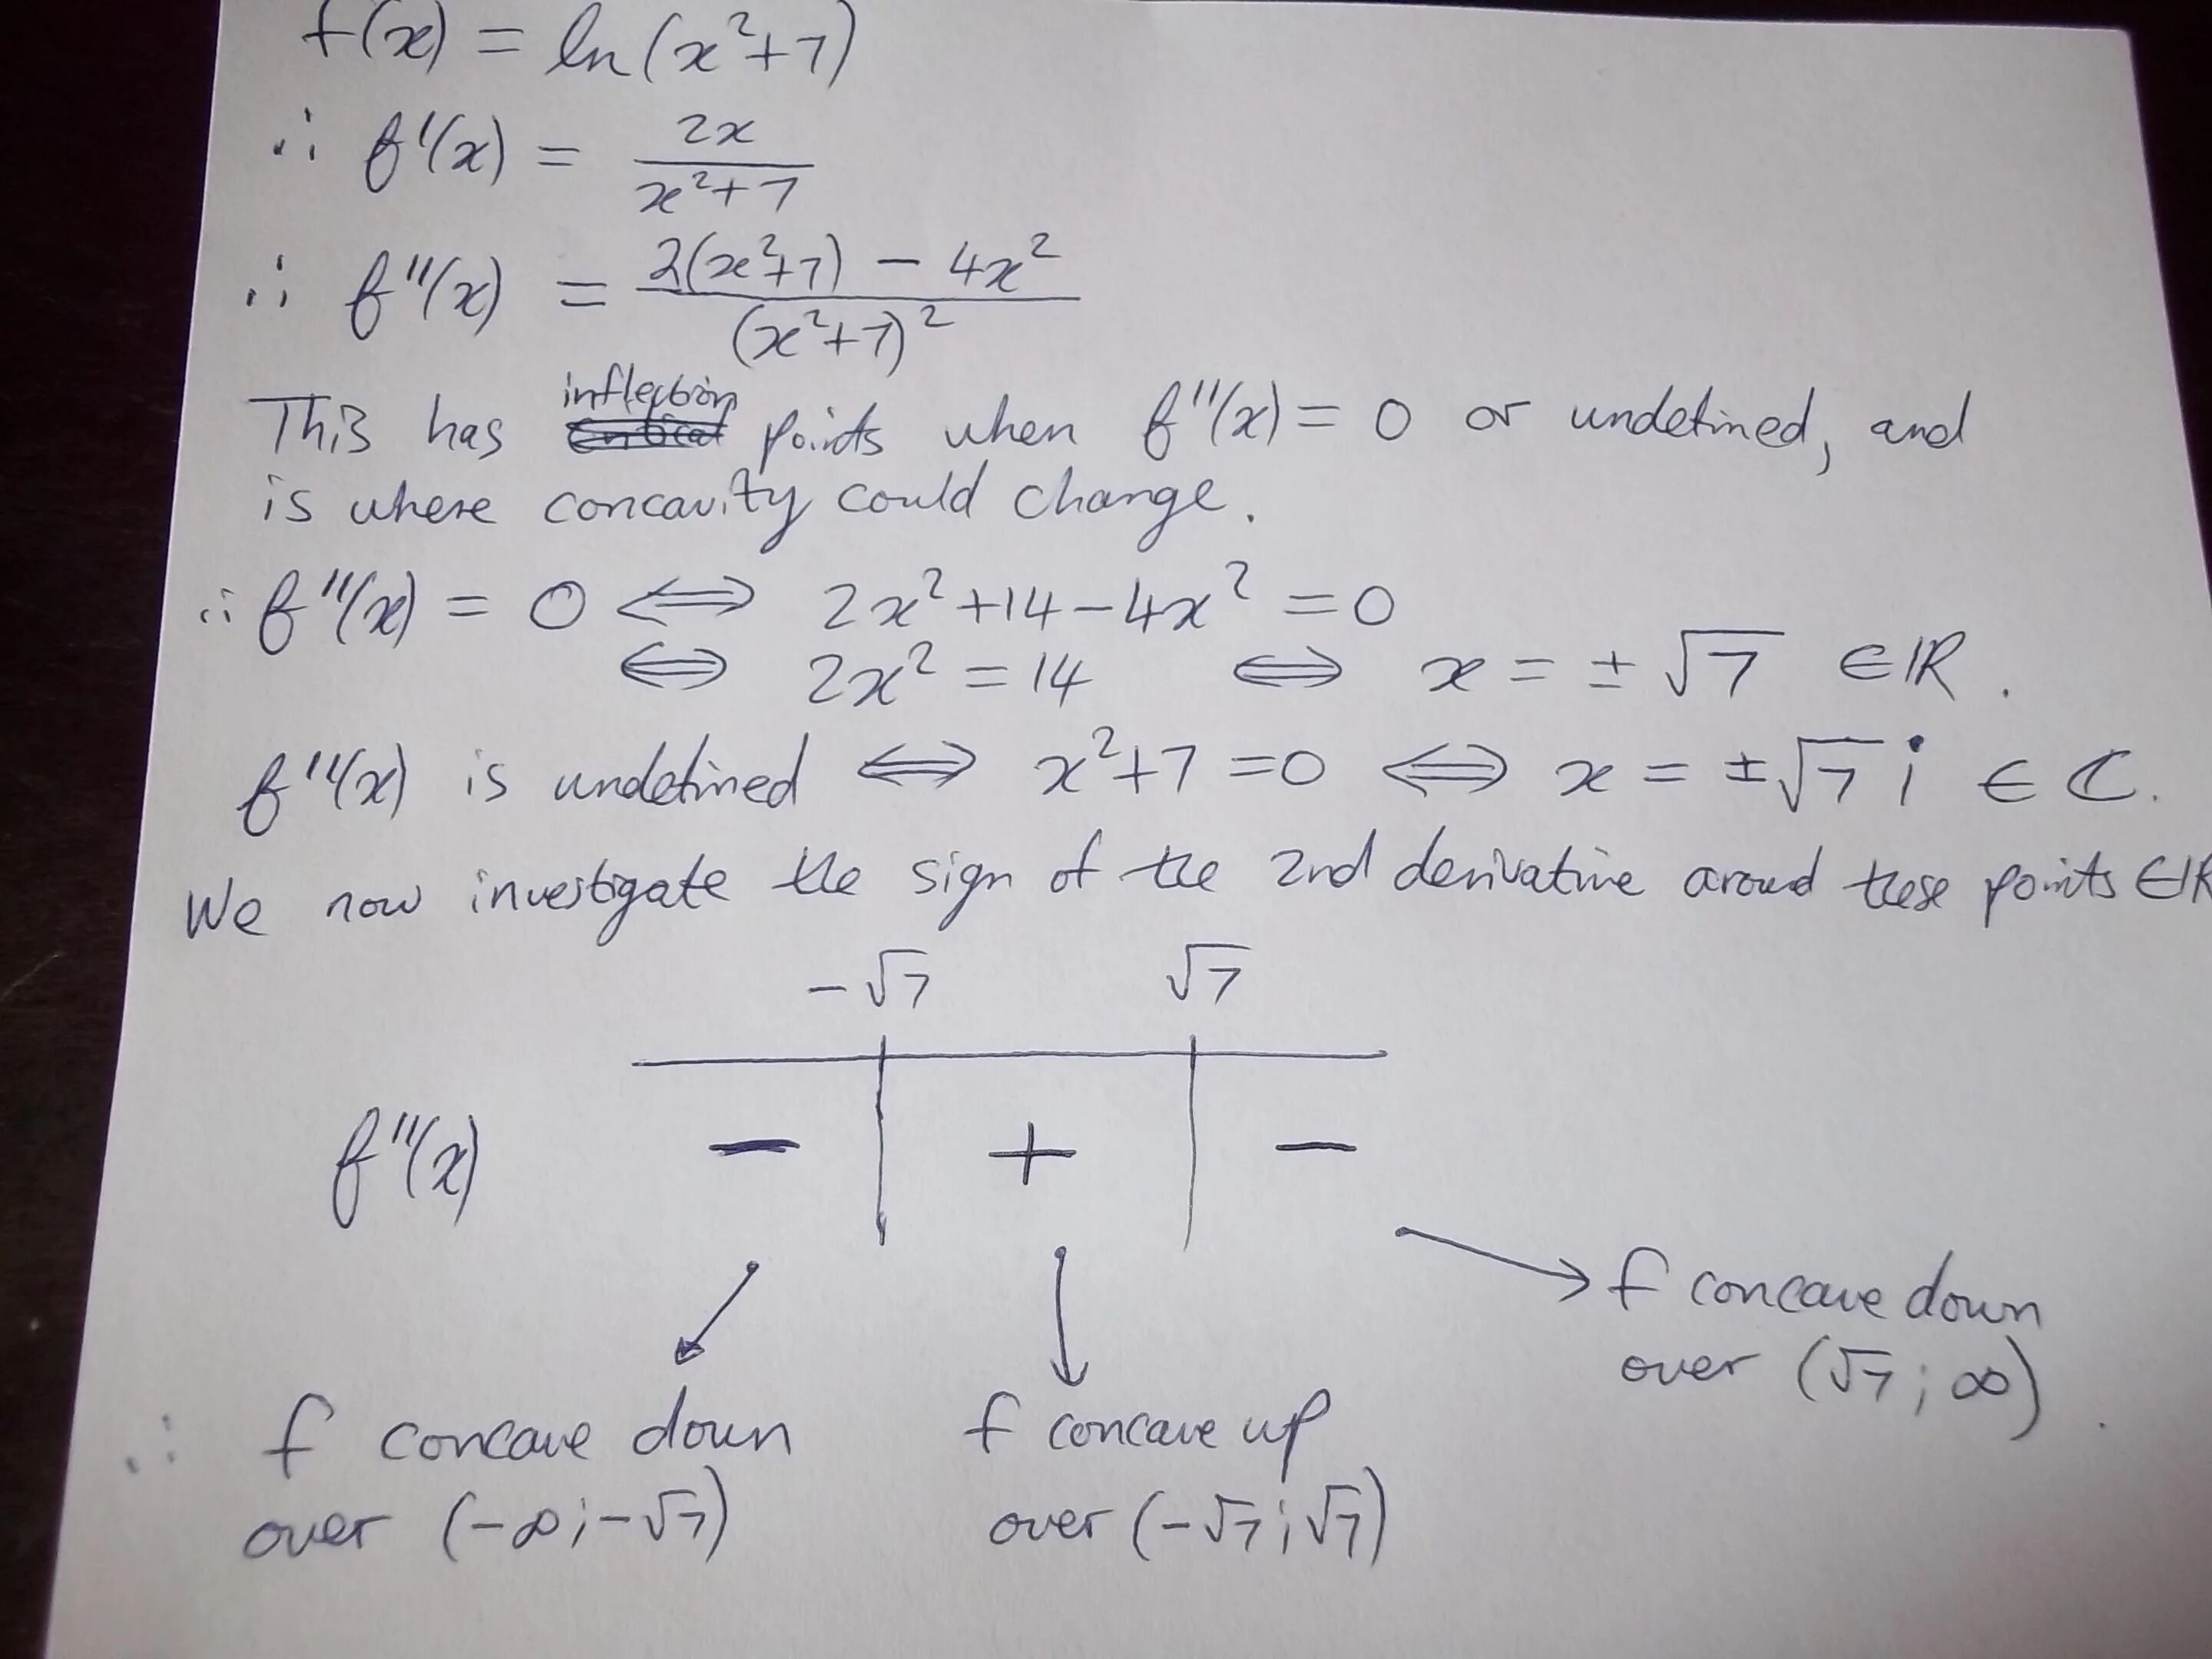 f(x) = ln(x²+7)
∴ f'(x) = 2x / x²+7
∴ f''(x) = 2(x²+7) − 4x² / (x²+7)²
This has inflection points when f''(x) = 0 or undefined, and
is where concavity could change.
∴ f''(x) = 0 ⟺ 2x²+14−4x² = 0
⟺ 2x² = 14 ⟺ x = ±√7 ∈ℝ.
f''(x) is undefined ⟺ x²+7 = 0 ⟺ x = ±√7 i ∈ ℂ.
We now investigate the sign of the 2nd derivative around these points ∈ℝ
−√7 √7
f''(x) − + −
f concave down
over (√7; ∞).
∴ f concave down f concave up
over (−∞;−√7) over (−√7;√7)